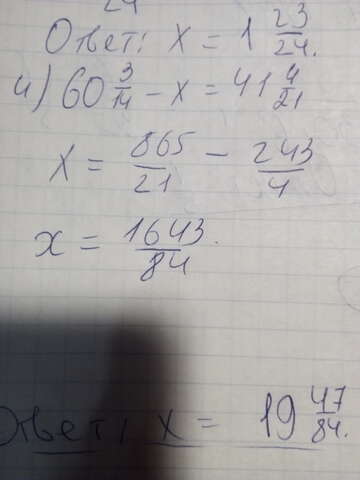 24
Ответ: x = 1 23/24.
и) 60 3/14 - x = 41 4/21
x = 865/21 - 243/4
x = 1643/84.
Ответ: x = 19 47/84.